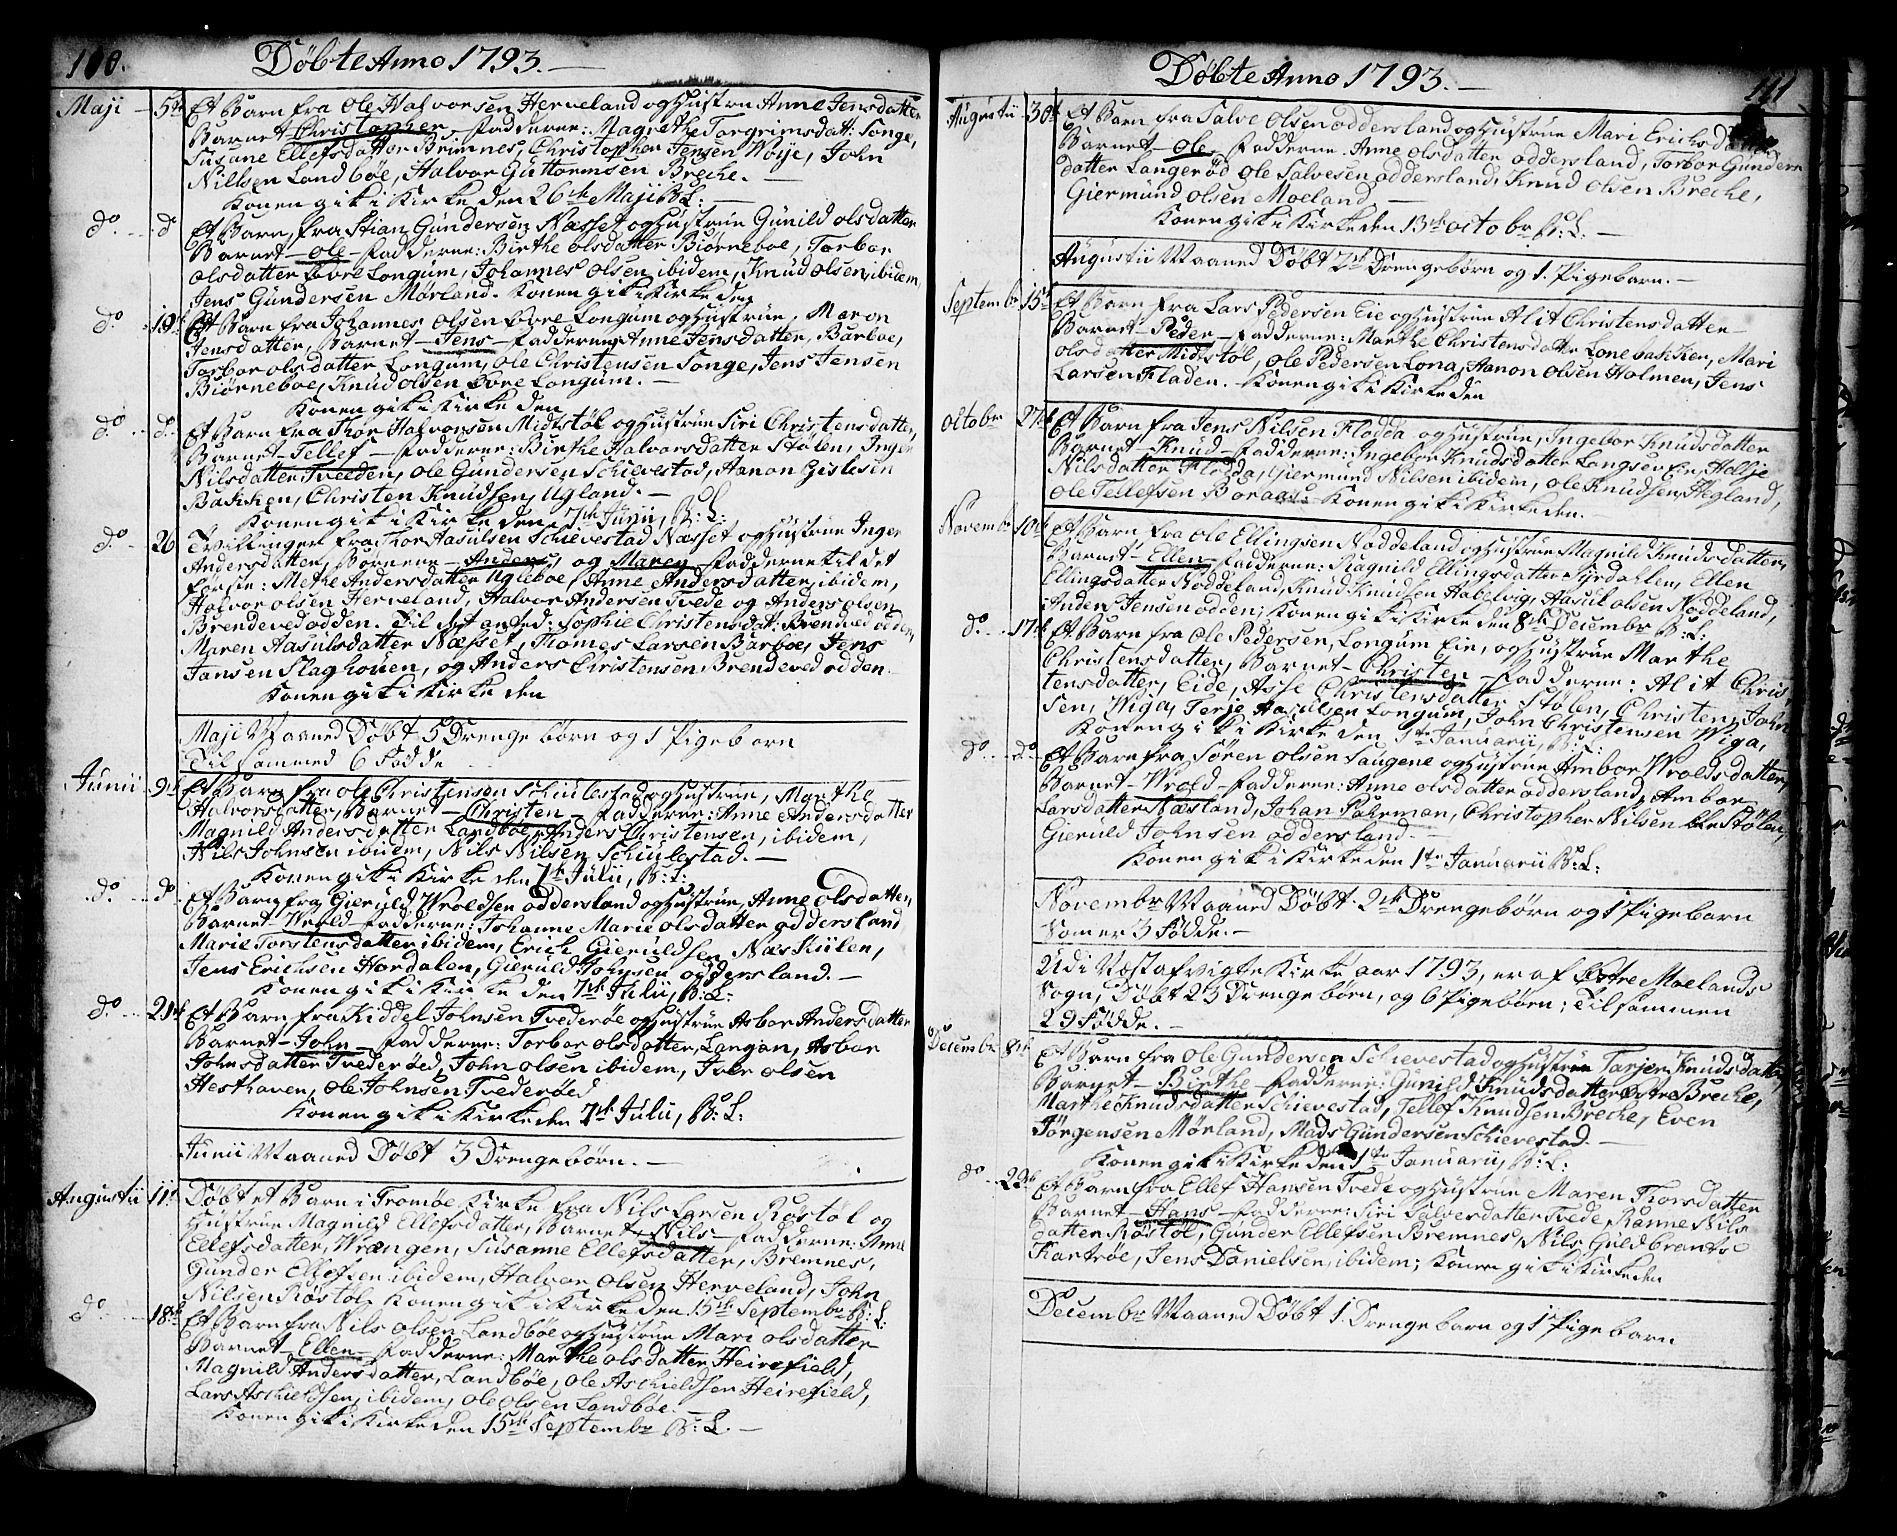 100.
Döbte Anno 1793.
Maji 5te Et Barn fra Ole Halvorsen Herveland og Hustru Anne Jensdatter
Barnet Christopher, Fadderne: Magrethe Torgrimsdatt: Songe,
Susane Ellefsdatter Bremnes, Christopher Jensen Woije, John
Nillsen Landböe, Halvor Guttormsen Breche. —
Konen gik i Kirke den 26te Maji B: L: —
do. d. Et Barn, fra Stian Gundersen Næsset og Hustrue Gunild Olsdatter
Barnet — Ole — Fadderne: Birthe Olsdatter Biörneboe, Torbor
Olsdatter Övre Longum, Johannes Olsen ibidem, Knud Olsen, ibidem,
Jens Gundersen Mörland. Konen gik i Kirke den
do. 19de Et Barn fra Johannes Olsen Övre Longum og Hustrue, Maren
Jensdatter, Barnet — Jens — Fadderne Anne Jensdatter, Barboe,
Torbor Olsdatter Longum, Ole Christensen Songe, Jens Jensen
Biörneboe, Knud Olsen Övre Longum. —
Konen gik i Kirke den
do. d. Et Barn fra Thor Halvorsen Midtstöl og Hustrue Siri Christensdatter,
Barnet — Tellef — Fadderne: Birthe Halvorsdatter Stölen, Inger
Nilsdatter Tveden, Ole Gundersen Schievestad, Aanon Gislesen
Bakken, Christen Knudsen, Ugland. —
Konen gik i Kirke den 7de Junii, B: L:
do. 26 Tvillinger fra Thor Aasulsen Schievestad Næsset og Hustrue Inger
Andersdatter, Börnene — Anders, og Maren Fadderne til det
förste: Methe Andersdatter Ugleboe, Anne Andersdatter, ibidem,
Halvor Olsen Herveland, Halvor Andersen Tvede og Anders Olsen
Brende ved Odden. Til det andet: Sophie Christensdat: Brende ved Odden
Maren Aasulsdatter Næsset, Thomes Larsen Barboe, Jens
Jansen Flaghouen, og Anders Christensen Brende ved Odden.
Konen gik i Kirke den
Maji Maaned Döbt 5 Drenge börn og 1 Pigebarn
Til sammed 6 Födde
Junii 9de Et Barn fra Ole Christensen Schiulestad og Hustrue, Marthe
Halvorsdatter, Barnet — Christen — Fadderne: Anne Andersdatter
Magnild Andersdatter Landböe, Anders Christensen, ibidem,
Nils Johnsen ibidem, Nils Nilsen Schiulestad. —
Konen gik i Kirke den 7de Julii, B: L:
do. d Et Barn fra Gieruld Wroldsen Oddersland og Hustrue, Anne Olsdatter,
Barnet — Wrold Fadderne: Johanne Marie Olsdatter Oddersland
Marie Torstensdatter ibidem, Erich Gieruldsen Næs Kiilen,
Jens Erichsen Hordalen, Gieruld Johnsen Oddersland. —
Konen gik i Kirke den 7de Julii, B: L:
do. 21de Et Barn fra Kiddel Johnsen Tvederöe og Hustrue Asbor Andersdatter
Barnet — John — Fadderne: Torbor Olsdatter, Langan, Asbor
Johnsdatter Tvederöed, John Olsen ibidem, Iver Olsen
Hesthaven, Ole Johnsen Tvederöed
Konen gik i Kirke den 7de Julii, B: L:
Junii Maaned Döbt 3 Drengebörn. —
Augustii 11te Döbt et Barn i Tromöe Kirke fra Nils Larsen Röstöl og
Hustrue Magnild Ellefsdatter, Barnet — Nils — Fadderne: Anne
Ellefsdatter, Wrængen, Susanne Ellefsdatter, Bremnes,
Gunder Ellefsen ibidem, Halvor Olsen Herveland, John
Nilsen Röstöl, Konen gik i Kirke den 15de Septembr B: L:
do. 18de Et Barn fra Nils Olsen Landböe og Hustrue Mari Olsdatter
Barnet — Ellen — Fadderne: Marthe Olsdatter Heirefield,
Magnild Andersdatter, Landböe, Ole Aschieldsen Heirefield,
Lars Aschieldsen, ibidem, Ole Olsen Landböe.
Konen gik i Kirke den 15de Septembr B: L. —
Döbte Anno 1793. —
Augustii 30te Et Barn fra Salve Olsen Oddersland og Hustrue Mari Erichsdatter
Barnet — Ole. Fadderne: Anne Olsdatter Oddersland, Torbor Gunders
datter Langeröd Ole Salvesen Oddersland, Knud Olsen Breche,
Giermund Olsen Moeland —
Konen gik i Kirke den 13de Octobr B: L: —
Augustii Maaned Döbt 2de Drengebörn og 1. Pigebarn. —
Septembr 15de Et Barn fra Lars Pedersen Eie og Hustrue Alit Christensdatter
Barnet — Peder — Fadderne: Marthe Christensdatter Lonebakken, Mari
Olsdatter Midtstöl, Ole Pedersen Lona, Aanon Olsen Holmen, Jens
Larsen Fladen. — Konen gik i Kirke den
Octobr 27de Et Barn fra Jens Nilsen Flodda og Hustrue, Ingebor Knudsdatter
Barnet — Knud — Fadderne: Ingebor Knudsdatter Langsee Eie, Helje
Nilsdatter Flodda, Giermund Nilsen ibidem, Ole Knudsen, Hegland,
Ole Tellefsen Boraas: Konen gik i Kirke den. —
Novembr 10de Et Barn fra Ole Ellingsen Noddeland og Hustrue Magnild Knudsdatter,
Barnet — Ellen — Fadderne: Ragnild Ellingsdatter Fyrdahlen, Ellen
Ellingsdatter Noddeland, Knud Knudsen Habelvig, Aasul Olsen Noddeland,
Anders Jensen Odden; Konen gik i Kirke den 8de Decembr B: L:
do. 17de Et Barn fra Ole Pedersen, Longum Eie, og Hustrue Marthe
Christensdatter, Barnet — Christen — Fadderne: Alit Chris-
tensdatter, Eide, Asse Christensdatter Stölen, Christen John-
sen, Wiga, Terje Aasulsen Longum, John Christensen Wiga,
Konen gik i Kirke den 1te Januarii, B: L:
do. do Et Barn fra Sören Olsen Saugene og Hustrue Ambor Wroldsdatter,
Barnet — Wrold — Fadderne: Anne Olsdatter Oddersland, Ambor
Larsdatter Næsland, Johan Pahrman, Christopher Nilsen Stölen,
Gieruld Johnsen Oddersland.
Konen gik i Kirke den 1te Januarii B: L:
Novembr Maaned Döbt 2de Drengebörn og 1 Pigebarn
Som er 3 Födde. —
Udi Næst afvigte Kirke aar 1793, er af Östre Moelands
Sogn, Döbt 23 Drengebörn, og 6 Pigebörn; Tilsammen
29 Födde. —
Decembr 8de Et Barn fra Ole Gundersen Schievestad og Hustrue Tarjer Knudsdatter
Barnet — Birthe — Fadderne: Gunild Knudsdatter Östre Breche,
Marthe Knudsdatter Schievestad, Tellef Knudsen Breche, Even
Jörgensen Mörland, Mads Gundersen Schievestad. —
Konen gik i Kirke den 1te Januarii, B: L:
do. 22de Et Barn fra Ellef Hansen Tvede og Hustrue Maren Thorsdatter
Barnet — Hans — Fadderne: Siri Salvesdatter Tvede, Ranne Nils
datter Röstöl, Gunder Ellefsen Bremnes, Nils Guldbrants
Kartröe, Jens Danielsen, ibidem; Konen gik i Kirke den
Decembr Maaned Döbt 1. Drengebarn og 1 Pigebarn